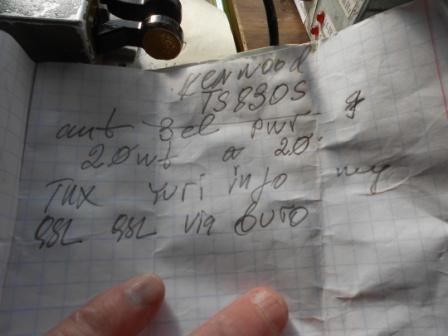 KENWOOD
TS830S
ant 3el PWR
20wt a 20.
TNX Yuri info my
QSL QSL via BURO